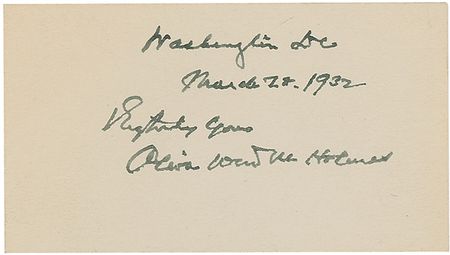 Washington DC
March 28. 1932
Very truly yours
Oliver Wendell Holmes